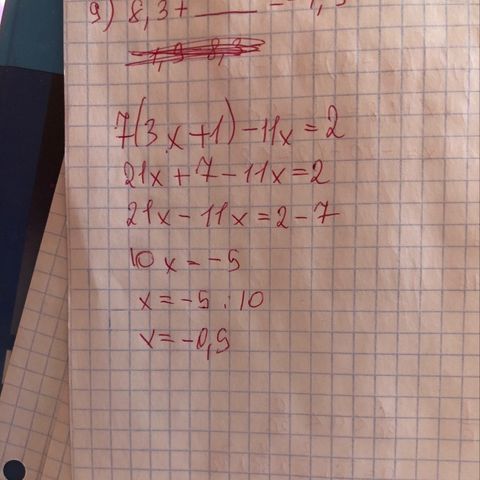 9) 8,3+ ____ =
7(3x+1)-11x=2
21x+7-11x=2
21x-11x=2-7
10x=-5
x=-5:10
x=-0,5